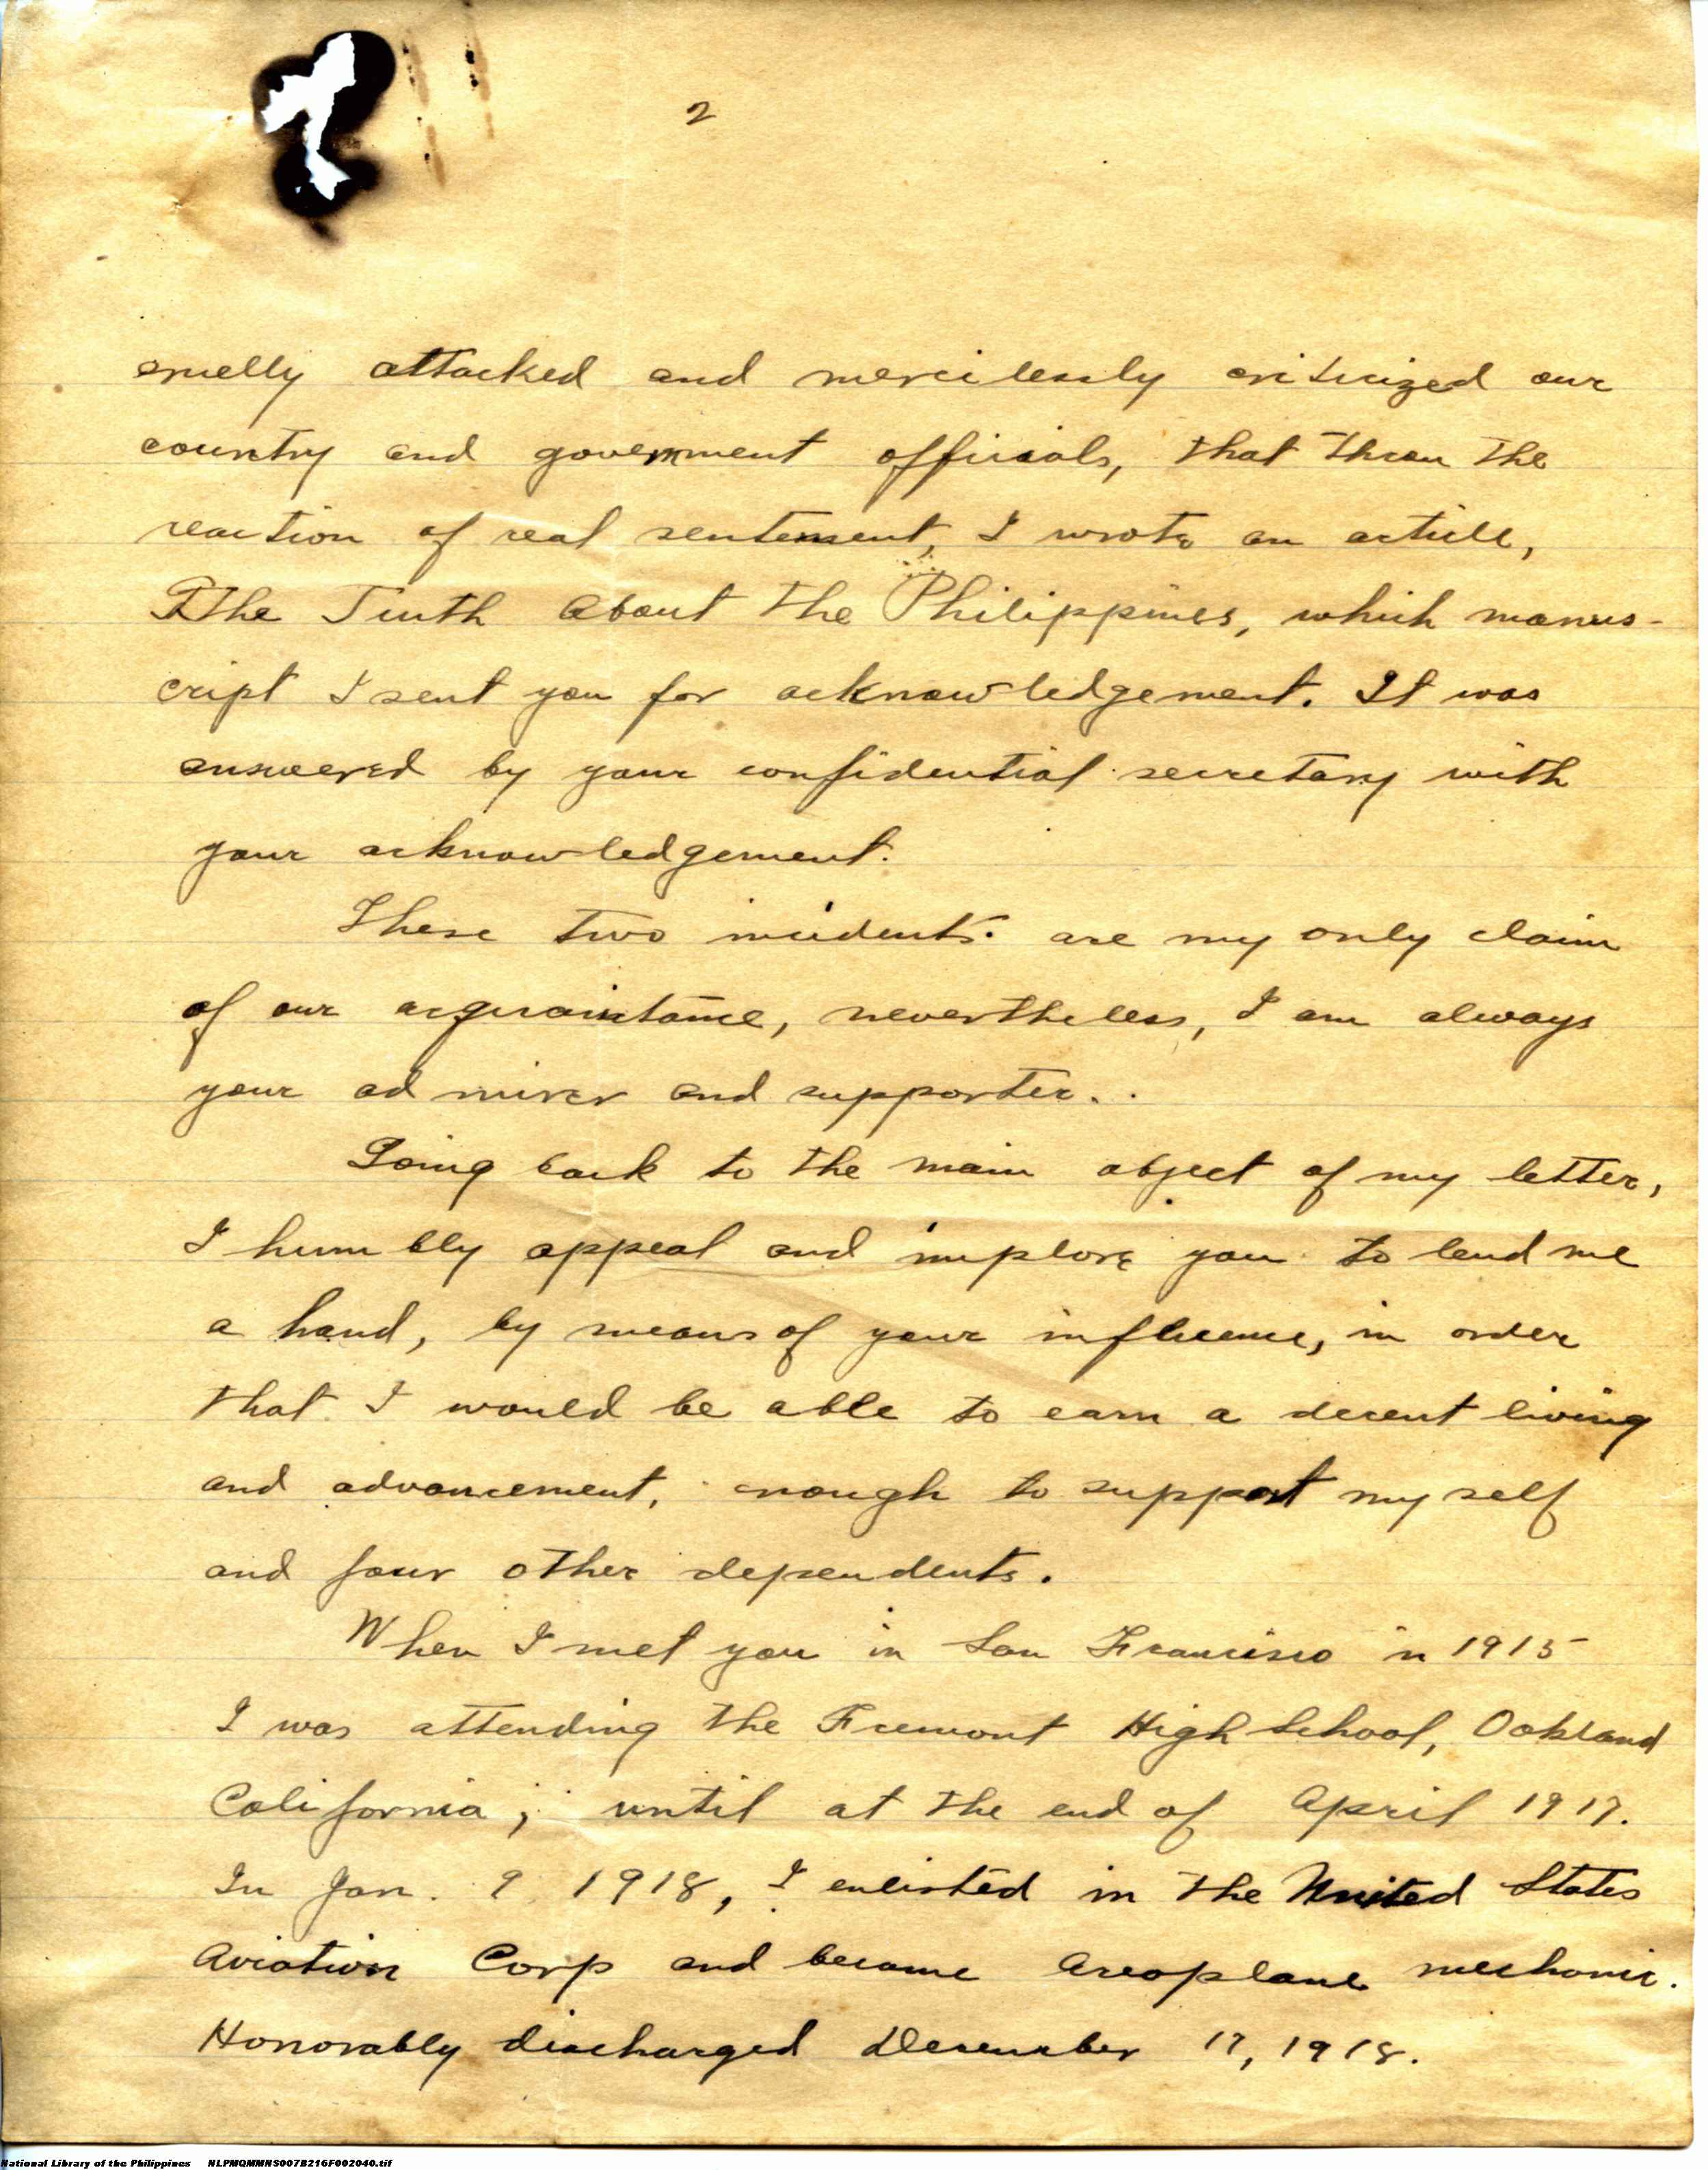 2
cruelly attacked and mercilessly criticized our
country and government officials, that throu the
reaction of real sentement, I wrote an article,
The Truth About the Philippines, which manus-
cript I sent you for acknowledgement. It was
answered by your confidential secretary with
your acknowledgement.
These two incidents are my only claim
of our acquaintance, nevertheless, I am always
your admirer and supporter.
Going back to the main object of my letter,
I humbly appeal and implore you to lend me
a hand, by means of your influence, in order
that I would be able to earn a decent living
and advancement, enough to support my self
and four other dependents.
When I met you in San Francisco in 1915
I was attending the Fremont High School, Oakland
California; until at the end of April 1917.
In Jan. 9 1918, I enlisted in the United States
Aviation Corp and became Areoplane mechanic.
Honorably discharged December 17, 1918.
National Library of the Philippines NLPMQMMNS007B216F002040.tif